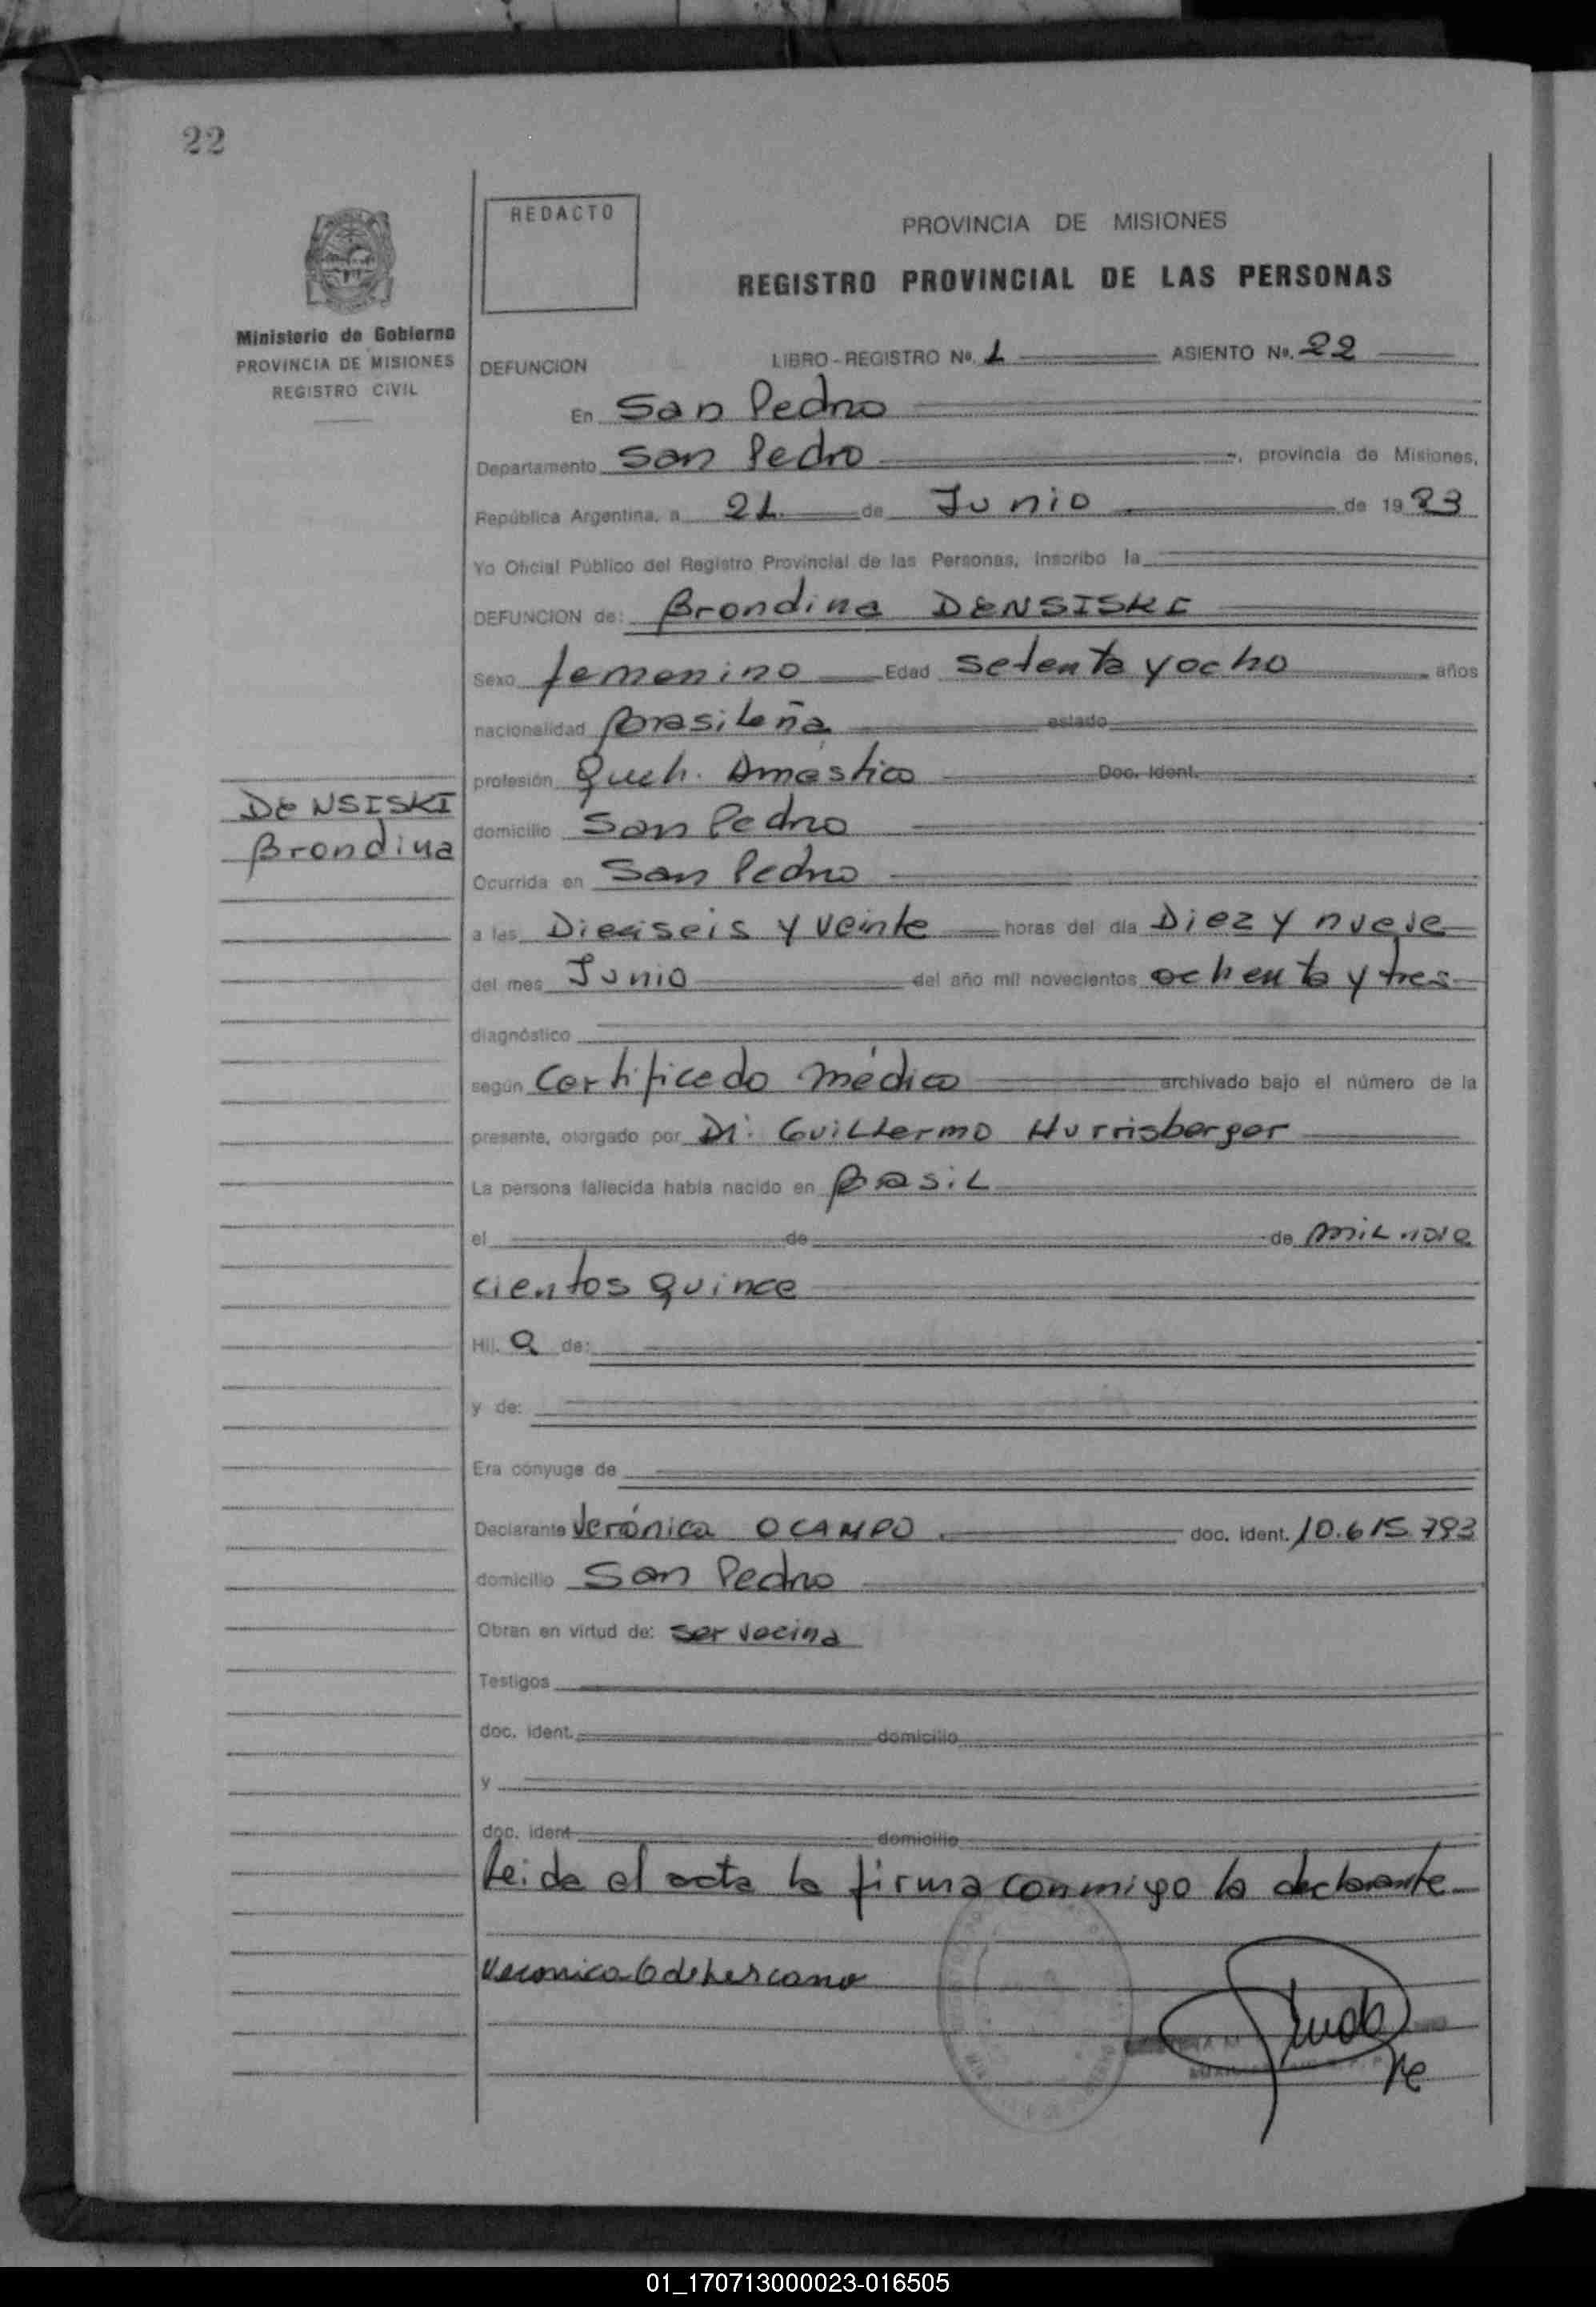 22
REDACTO
PROVINCIA DE MISIONES
REGISTRO PROVINCIAL DE LAS PERSONAS
Ministerio de Gobierno
PROVINCIA DE MISIONES
REGISTRO CIVIL
DEFUNCION LIBRO-REGISTRO Nº. 1 ASIENTO Nº. 22
En San Pedro
Departamento San Pedro, provincia de Misiones,
República Argentina, a 21 de Junio de 1983
Yo Oficial Público del Registro Provincial de las Personas, inscribo la
DEFUNCION de: Brondina DENSISKI
Sexo femenino Edad setenta y ocho años
nacionalidad Brasileña estado
profesión Queh. Dméstico Doc. Ident.
DENSISKI
Brondina
domicilio San Pedro
Ocurrida en San Pedro
a las Dieciseis y veinte horas del día Diez y nueve
del mes Junio del año mil novecientos ochenta y tres
diagnóstico
según Certificado médico archivado bajo el número de la
presente, otorgado por Dr. Guillermo Hurrisberger
La persona fallecida había nacido en Brasil
el de de mil nove
cientos quince
Hij. a de:
y de:
Era cónyuge de
Declarante Verónica OCAMPO doc. ident. 10.615.793
domicilio San Pedro
Obran en virtud de: ser vecina
Testigos
doc. ident. domicilio
y
doc. ident domicilio
Leida el acta la firma conmigo la declarante
Veronica O de
01_170713000023-016505